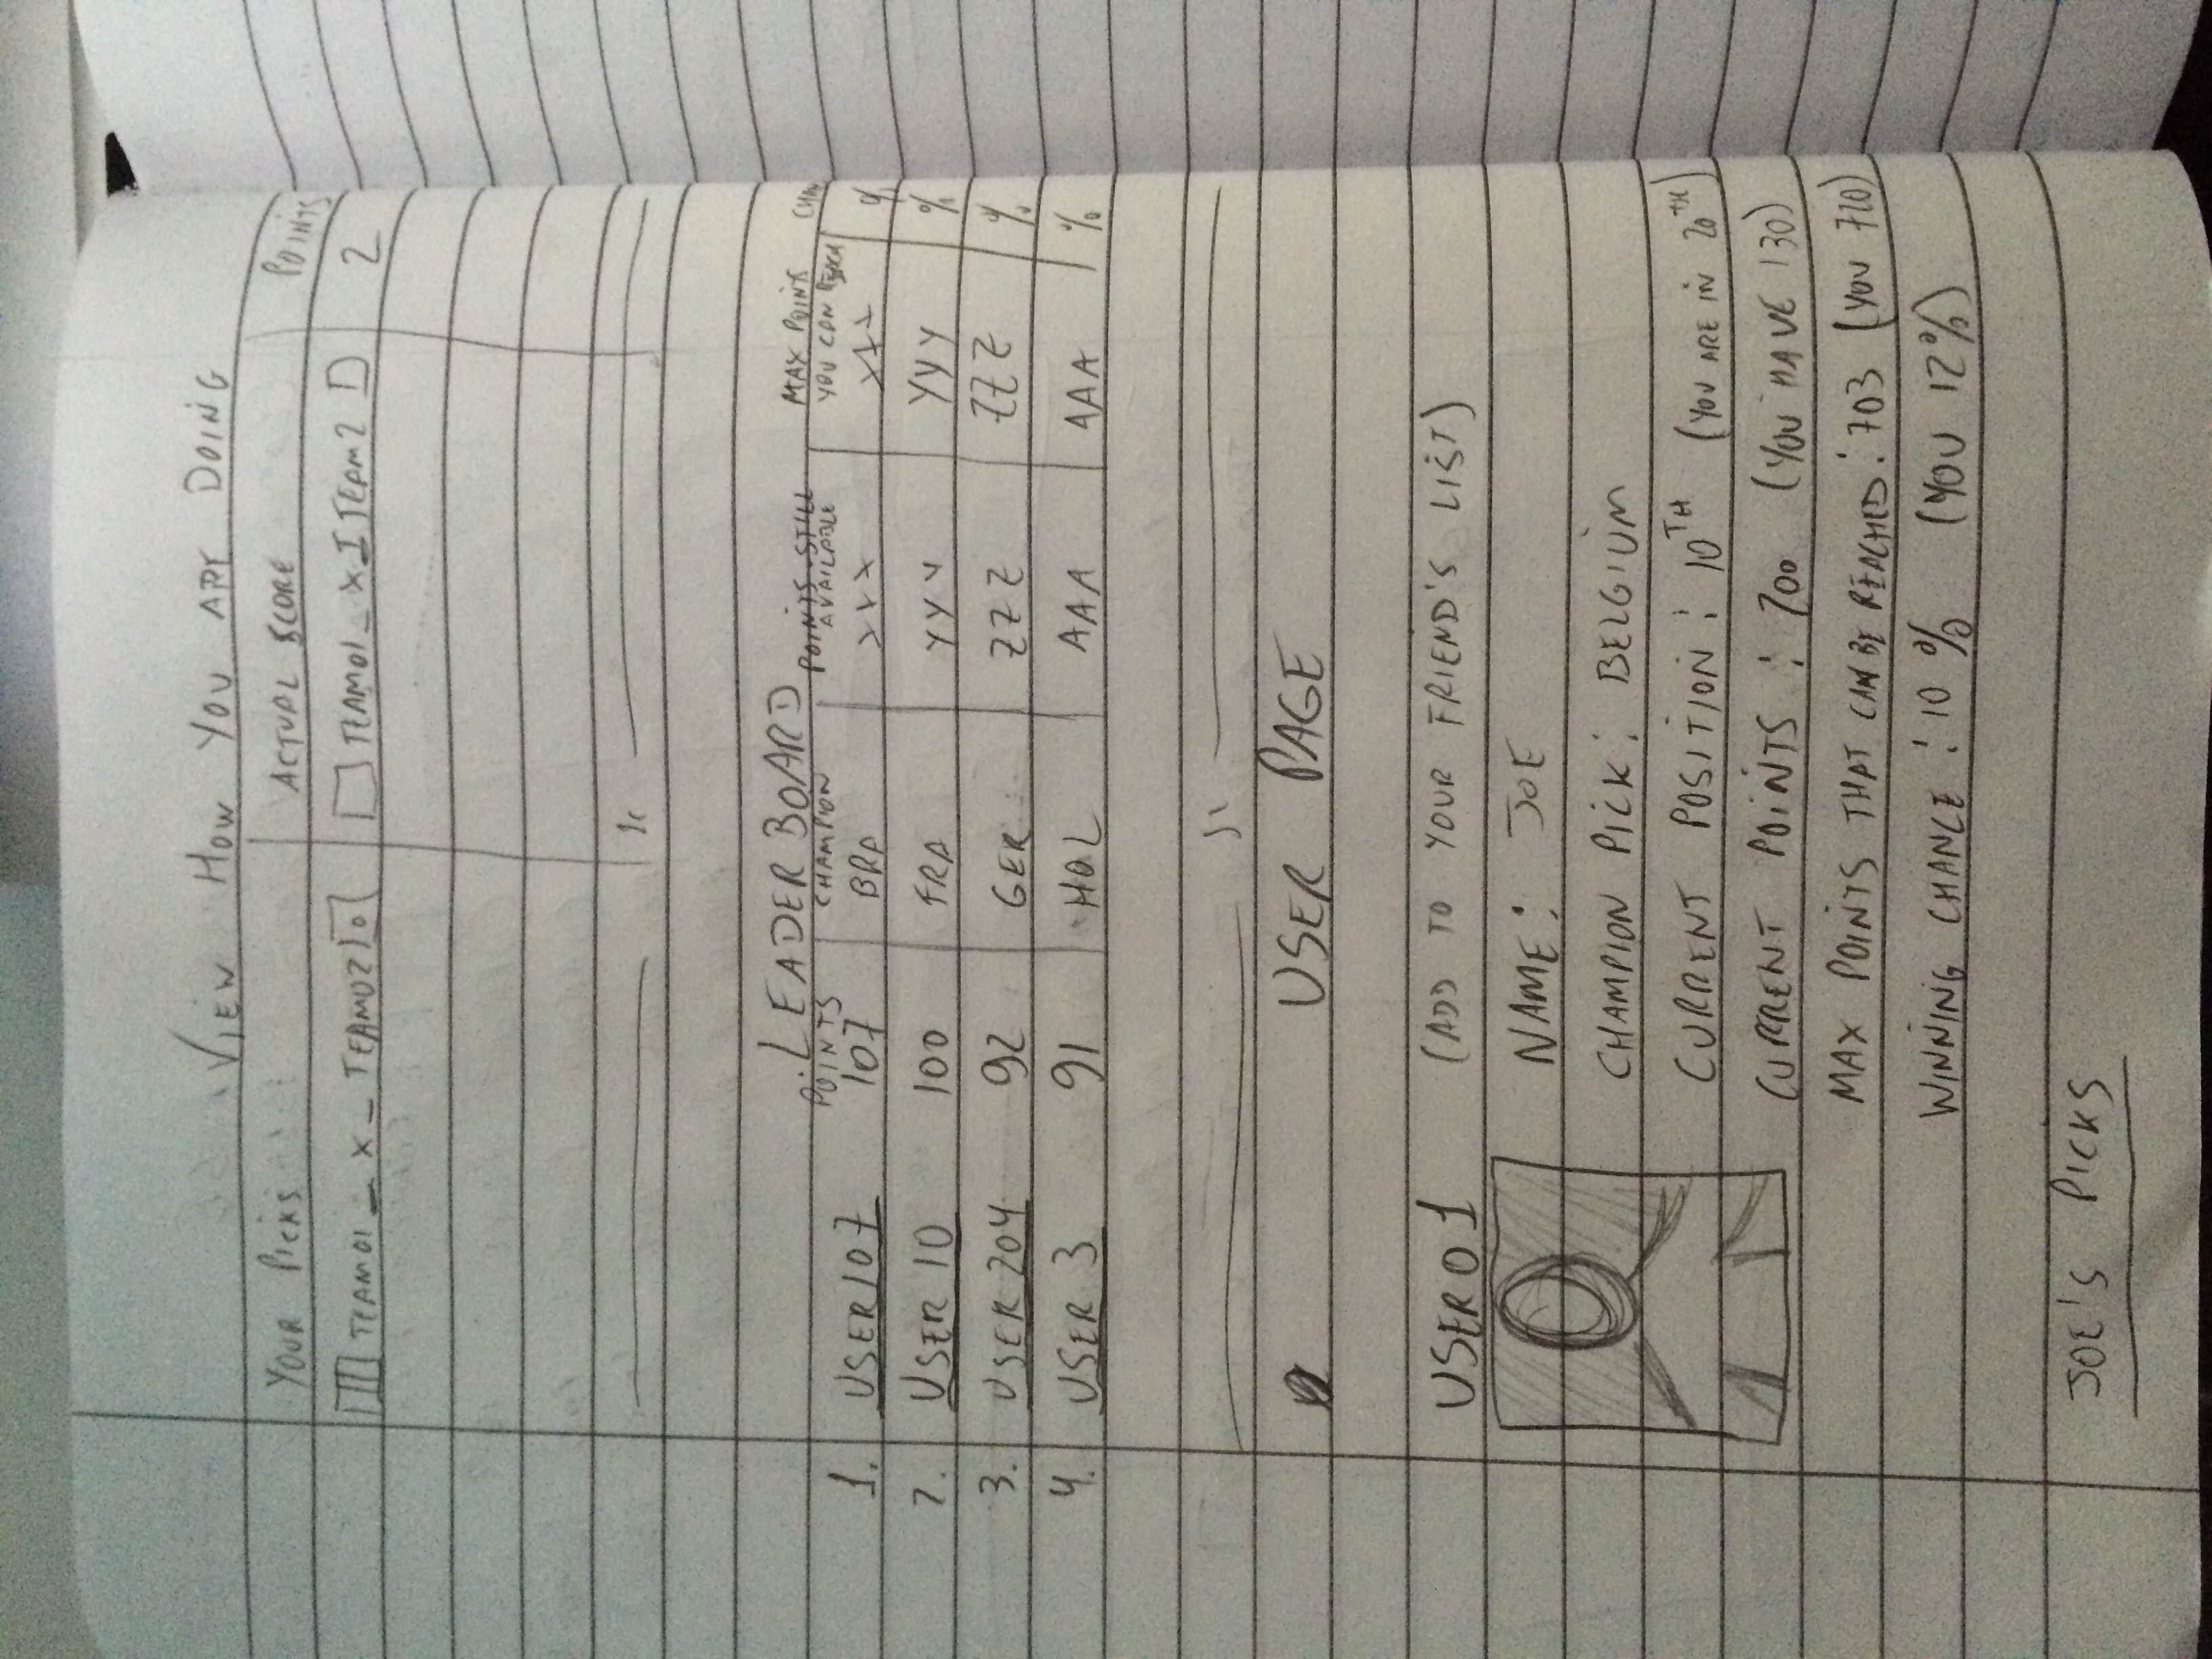 VIEW HOW YOU ARE DOING
YOUR PICKS ACTUAL SCORE POINTS
TEAM01 _ X _ TEAM02 TEAM01 _ X I TEAM2 2
LEADER BOARD
POINTS CHAMPION POINTS STILL AVAILABLE MAX POINTS YOU CAN REACH
1. USER107 107 BRA XXX XXX %
2. USER 10 100 FRA YYY YYY %
3. USER 204 92 GER ZZZ ZZZ %
4. USER 3 91 HOL AAA AAA %
USER PAGE
USER01 (ADD TO YOUR FRIEND'S LIST)
NAME: JOE
CHAMPION PICK: BELGIUM
CURRENT POSITION: 10TH (YOU ARE IN 20TH)
CURRENT POINTS: 200 (YOU HAVE 130)
MAX POINTS THAT CAN BE REACHED: 703 (YOU 720)
WINNING CHANCE: 10% (YOU 12%)
JOE'S PICKS